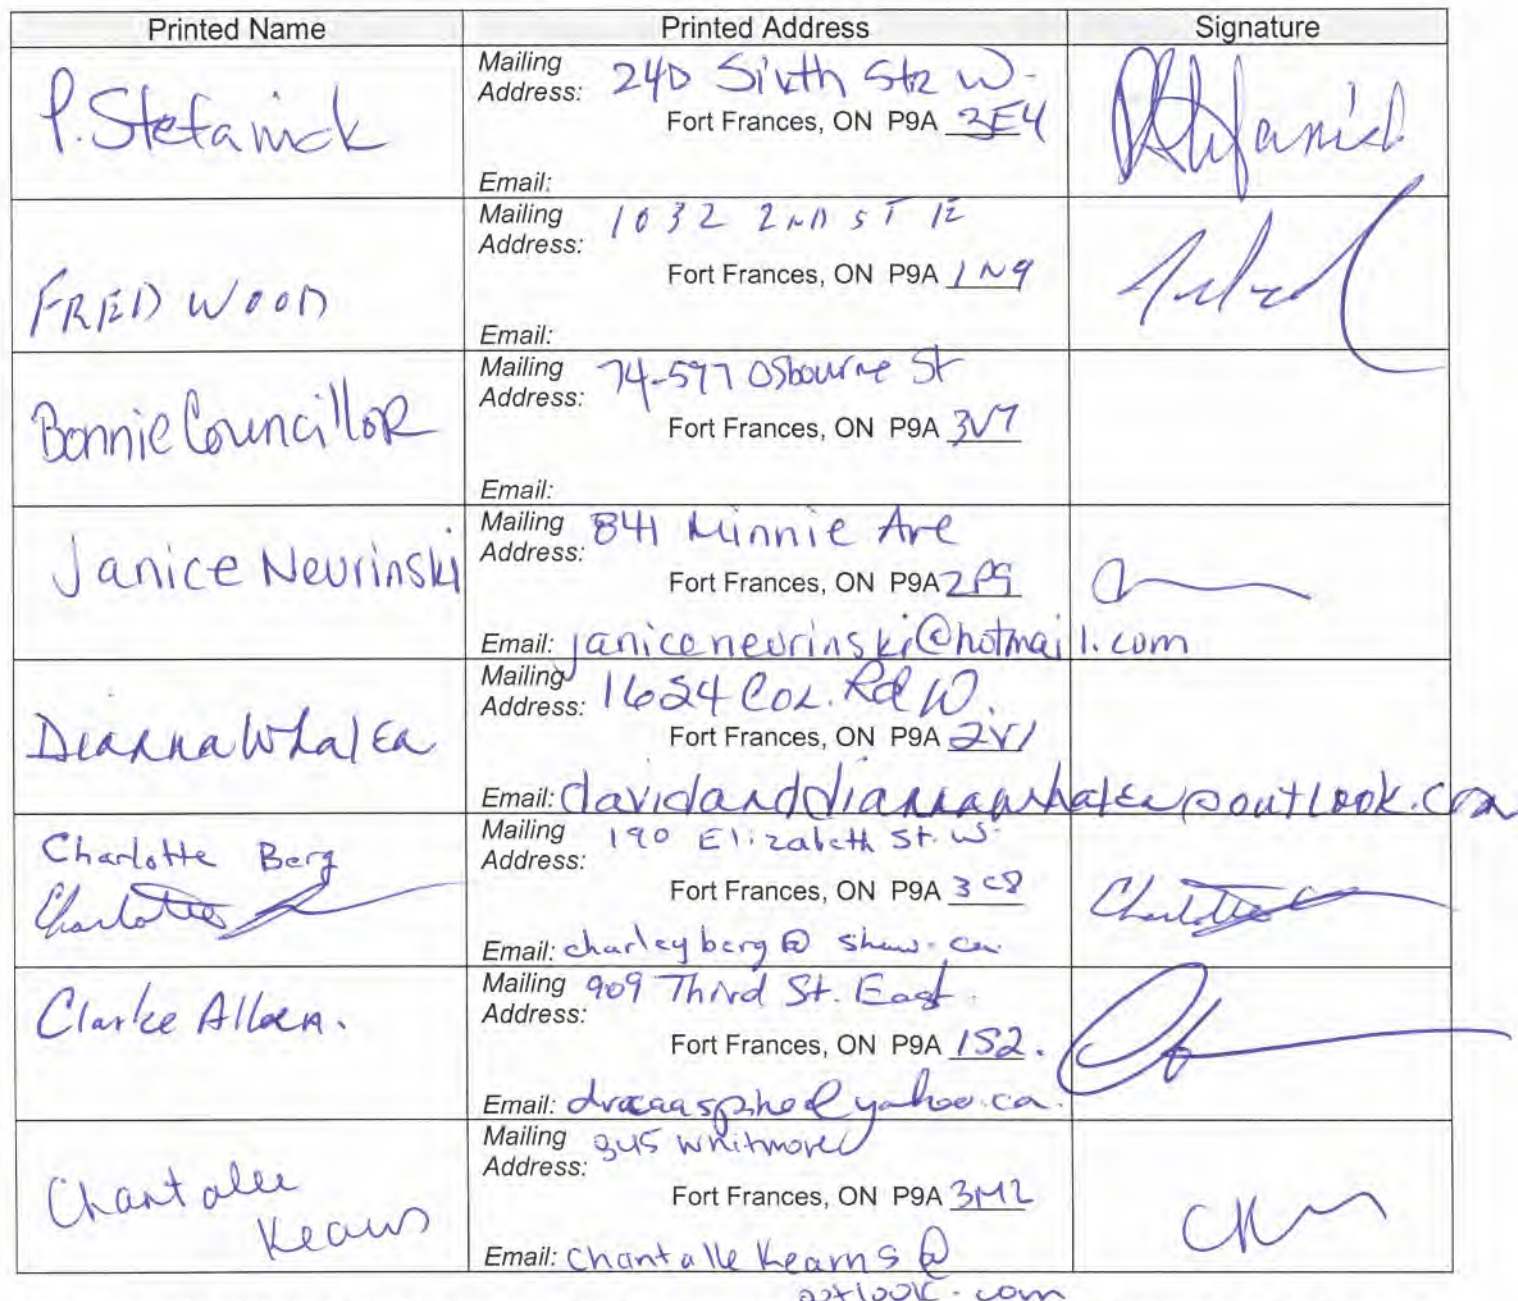 Printed Name Printed Address Signature
P. Stefanick
Mailing Address: 240 Sixth Str W.
Fort Frances, ON P9A 3E4
Email:
FRED WOOD
Mailing Address: 1032 2ND ST E
Fort Frances, ON P9A 1N9
Email:
Bonnie CouncilloR
Mailing Address: 74-597 Osbourne St
Fort Frances, ON P9A 3V7
Email:
Janice Nevrinski
Mailing Address: 841 Minnie Ave
Fort Frances, ON P9A 2P9
Email: janicenevrinski@hotmail.com
Dianna Whalen
Mailing Address: 1624 Col. Rd W.
Fort Frances, ON P9A 2V1
Email: davidanddiannawhalen@outlook.com
Charlotte Berg
Charlotte
Mailing Address: 190 Elizabeth St. W.
Fort Frances, ON P9A 3C8
Email: charleyberg@shaw.ca
Charlotte
Clarke Allen.
Mailing Address: 909 Third St. East.
Fort Frances, ON P9A 1S2.
Email: @yahoo.ca.
Chantalle
Kearns
Mailing Address: 345 Whitmore
Fort Frances, ON P9A 3M2
Email: Chantalle Kearns @
outlook.com